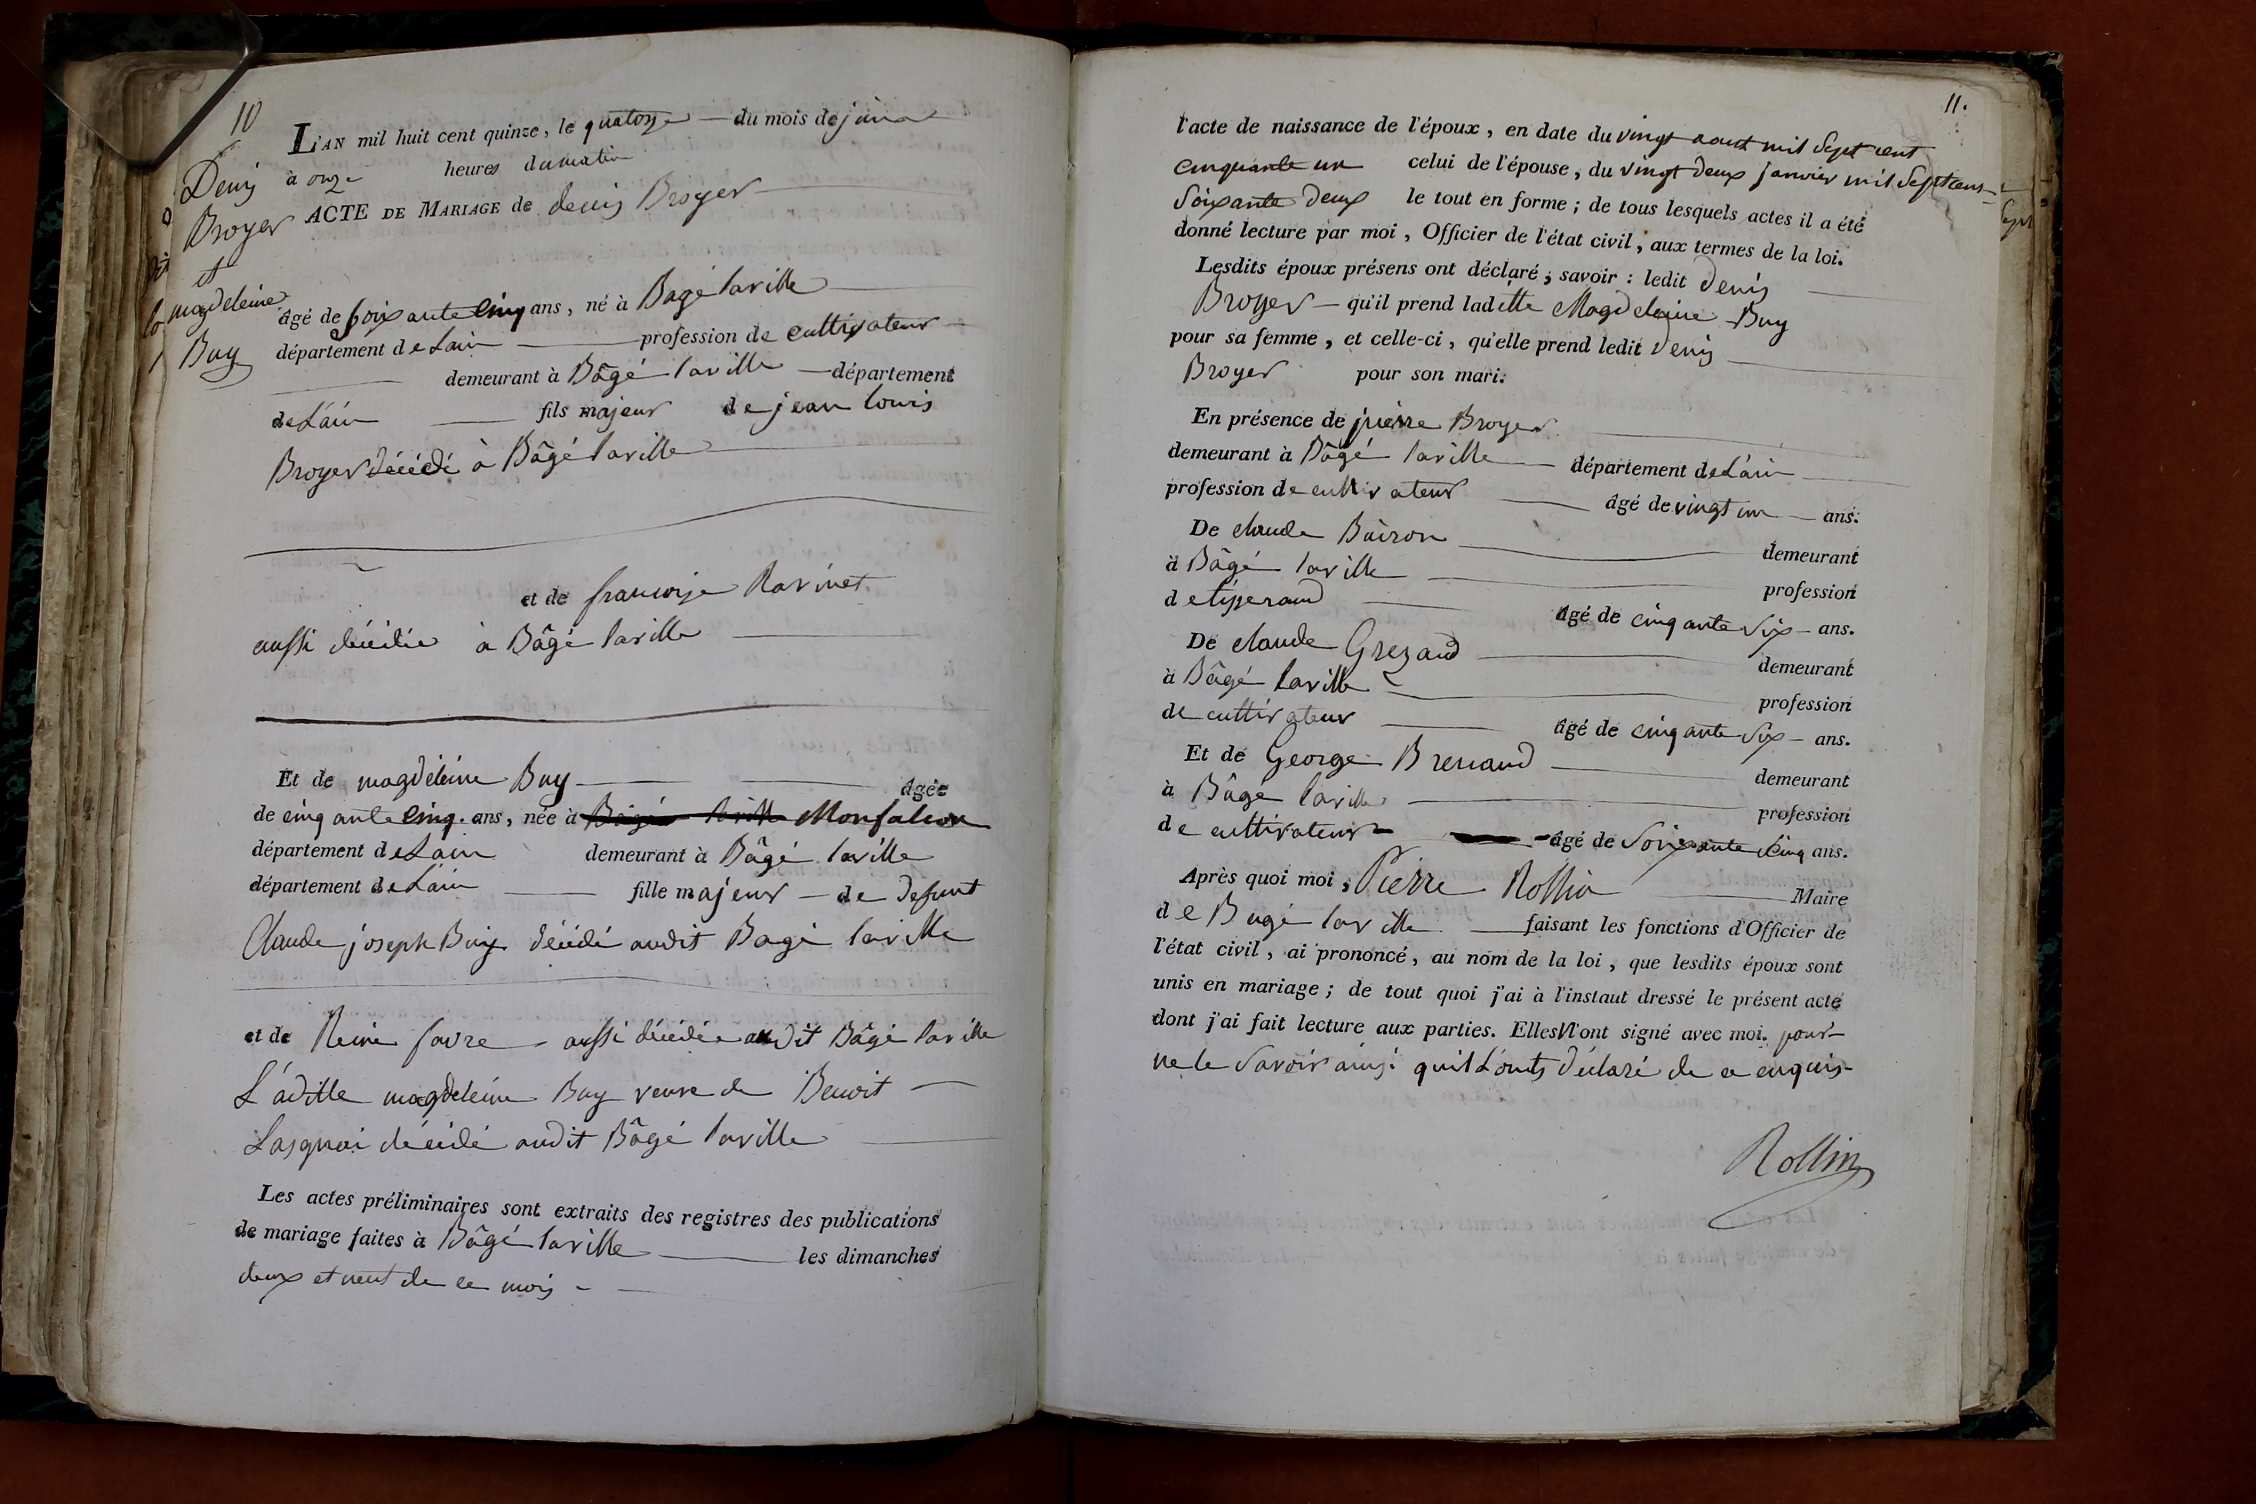 10
Denis
Broyer
et
magdeleine
Buy
L'AN mil huit cent quinze, le quatorze du mois de juin
à onze heures du matin
ACTE DE MARIAGE de denis Broyer
âgé de soixante cinq ans, né à Bagé laville
département de Lain profession de cultivateur
demeurant à Bâgé laville département
de Láin fils majeur de jean louis
Broyer décédé à Bâgé laville
et de francoise Ravinet
aussi décédée à Bâgé laville
Et de magdeleine Buy âgée
de cinqante cinq ans, née à Bagé laville Monfalcon
département de Lain demeurant à Bâgé laville
département de Láin fille majeur de defunt
Claude joseph Buy décédé audit Bagé laville
et de Reine favre aussi décédée audit Bâgé laville
Laditte magdeleine Buy veuve de Benoit
décédé audit Bâgé laville
Les actes préliminaires sont extraits des registres des publications
de mariage faites à Bâgé laville les dimanches
deux et neuf de ce mois
11.
l'acte de naissance de l'époux, en date du vingt aout mil sept cent
cinquante un celui de l'épouse, du vingt deux janvier mil sept cens
soixante deux le tout en forme; de tous lesquels actes il a été
donné lecture par moi, Officier de l'état civil, aux termes de la loi.
Lesdits époux présens ont déclaré, savoir: ledit denis
Broyer qu'il prend laditte Magdeleine Buy
pour sa femme, et celle-ci, qu'elle prend ledit denis
Broyer pour son mari.
En présence de pierre Broyer
demeurant à Bâgé laville département de Láin
profession de cultivateur âgé de vingt un ans.
De claude Buiron demeurant
à Bâgé laville profession
de tisserand âgé de cinqante six ans.
De claude Grezaud demeurant
à Bâgé laville profession
de cultivateur âgé de cinqante six ans.
Et de George Brenaud demeurant
à Bâgé laville profession
de cultivateur âgé de soixante cinq ans.
Après quoi moi, Pierre Rollin Maire
de Bagé laville faisant les fonctions d'Officier de
l'état civil, ai prononcé, au nom de la loi, que lesdits époux sont
unis en mariage; de tout quoi j'ai à l'instaut dressé le présent acte
dont j'ai fait lecture aux parties. Elles N'ont signé avec moi. pour
ne le savoir ainsi quil Lonts déclaré de ce enquis
Rollin